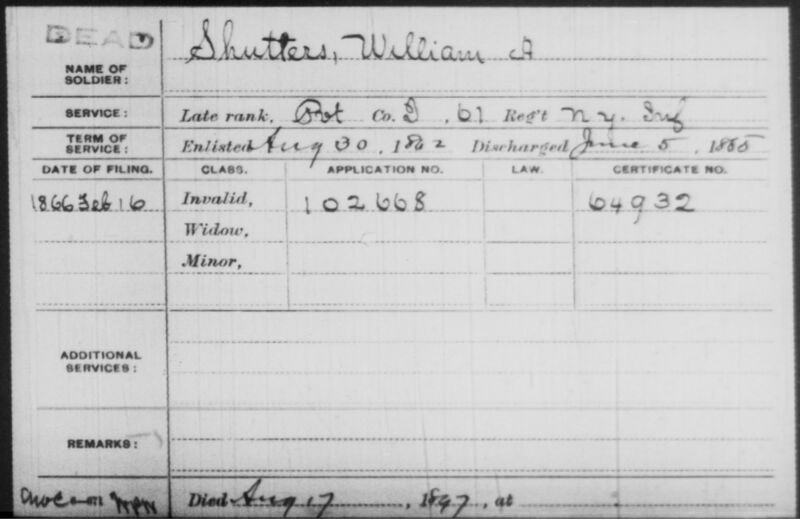 DEAD
NAME OF SOLDIER: Shutters, William A
SERVICE: Late rank, Pvt Co. I, 61 Reg't N.Y. Inf
TERM OF SERVICE: Enlisted Aug 30, 1862 Discharged June 5, 1865
DATE OF FILING. CLASS. APPLICATION NO. LAW. CERTIFICATE NO.
1866 Feb 16 Invalid, 102668 64932
Widow,
Minor,
ADDITIONAL SERVICES:
REMARKS:
Died Aug 17, 1897, at